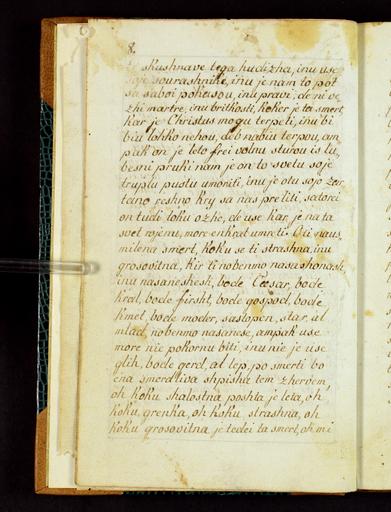 8.
skushnave tega hudizha, inu use
soje sourashnike, inu je nam to pot
sa saboi pokasou, inu pravi, de ni ve
zhi martre, inu britkosti, koker je ta smert,
kar je Christus mogu terpeti, inu bi
biu lohko nehou, de b nabiu terpou, am
pak on je leto frei volnu sturou is lu
besni pruki nam je on to svetu soje
truplu pustu umoriti, inu je otu sojo
reshno kry sa nas preliti, satorei
on tudi loku ozhe, de use kar je na ta
svet rojenu, more enkrat umreti. O ti naus
milena smert, koku se ti strashna, inu
grosovitna, kir ti nobenmo nasashonash,
inu nasaneshesh, bode Cesar, bode
kral, bode firsht, bode gospod, bode
kmet, bode moder, sastopen, star, al
mlad, nobenmo nasanese, ampak use
more nie pokornu biti, inu nie je use
glih, bode gerd, al lep, po smerti bo
ena smerdliva shpisha tem zherveM,
oh koku shalostna poshta je leta, oh
koku grenka, oh koku strashna, oh
koku grosovitna je tedei ta smert, oh mi